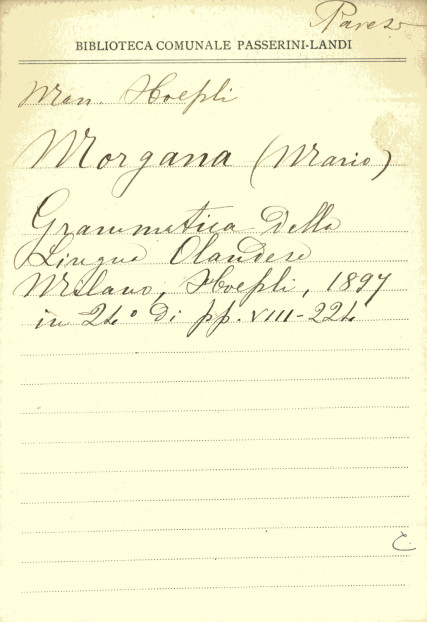 BIBLIOTECA COMUNALE PASSERINI-LANDI
Man. Hoepli
Morgana (Mario)
Grammatica della
Lingua Olandese
Milano, Hoepli, 1897
in 24° di pp. VIII-224
C